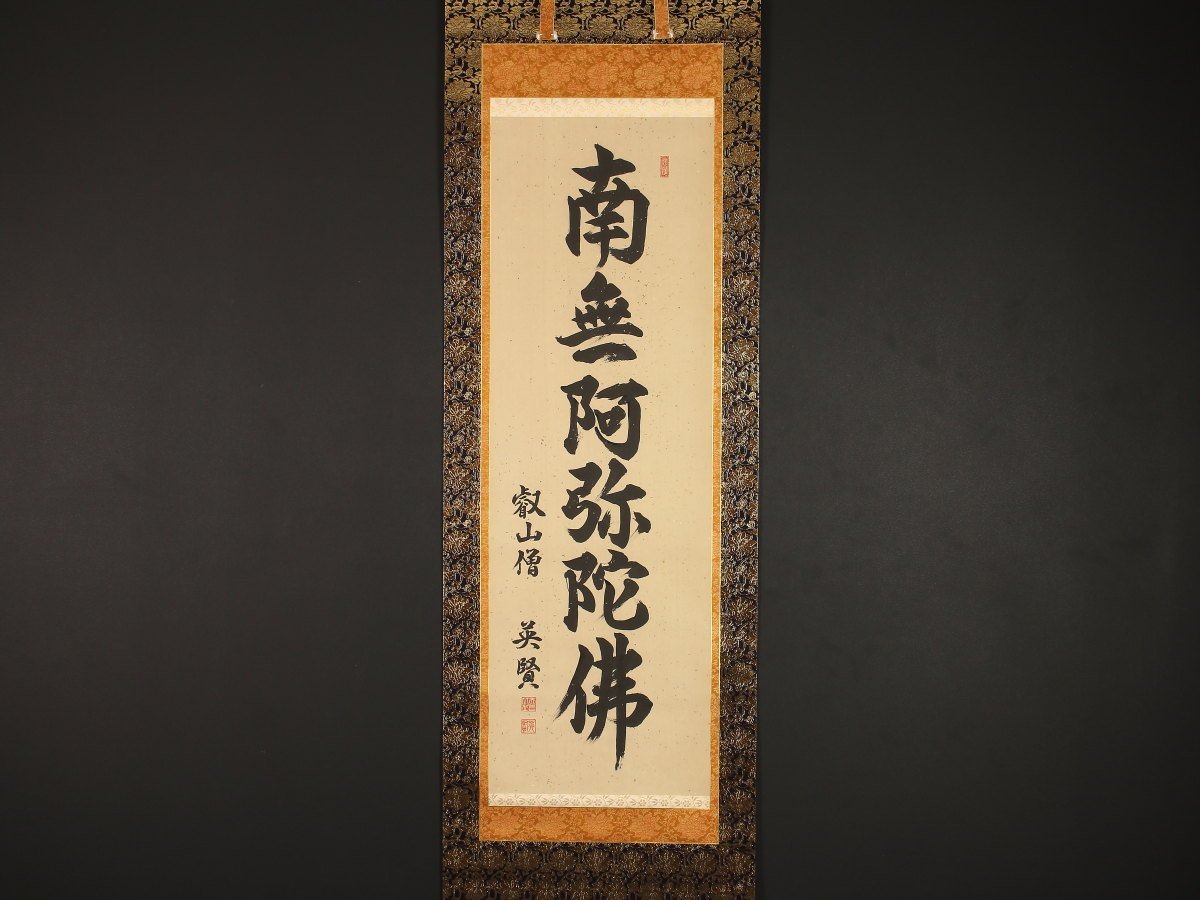 南無阿弥陀佛
叡山僧 英賢